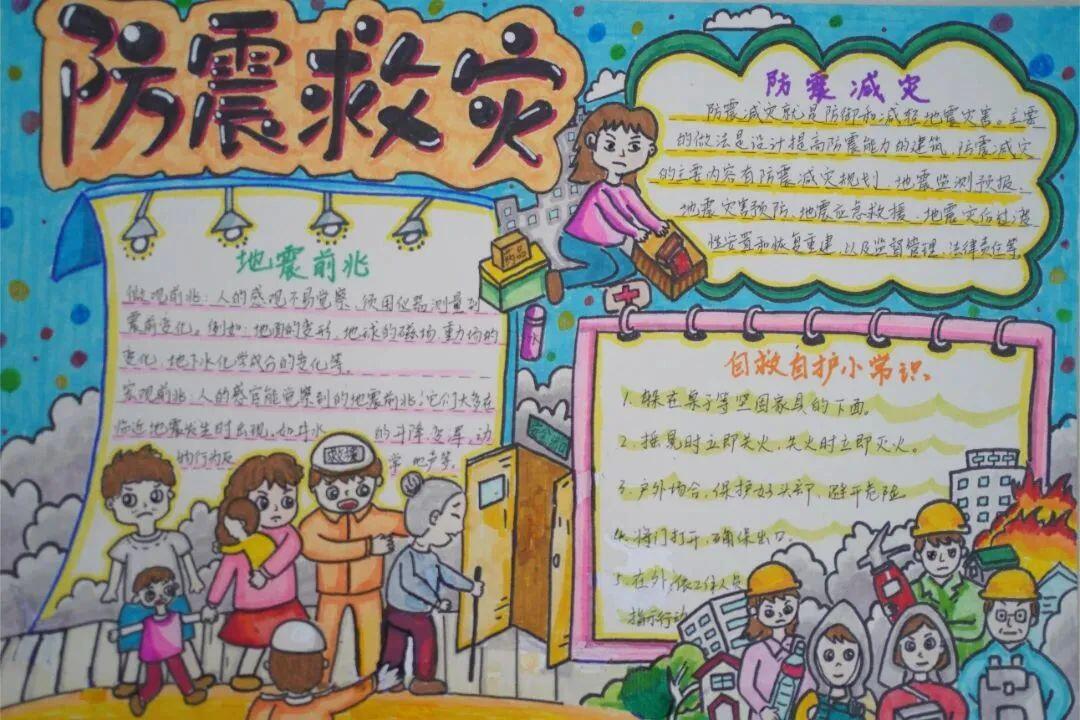 防震救灾
防震减灾
防震减灾就是防御和减轻地震灾害。主要
的做法是设计提高防震能力的建筑,防震减灾
的主要内容有防震减灾规划、地震监测预报、
地震灾害预防、地震应急救援、地震灾后过渡
性安置和恢复重建,以及监督管理、法律责任等
药品
水
地震前兆
微观前兆:人的感观不易觉察,须用仪器测量到
震前变化。例如:地面的变形,地球的磁场、重力场的
变化,地下水化学成合的变化等。
宏观前兆:人的感官能觉察到的地震前兆;它们大多在
临近地震发生时出现。如井水 的升降、变浑,动
物行为反 常 地声等。
救援
自救自护小常识。
1. 躲在桌子等坚固家具的下面。
2. 摇晃时立即关火,失火时立即灭火。
3. 户外场合,保护好头部,避开危险
4. 将门打开,确保出口。
5. 在外,依工作人员
指示行动